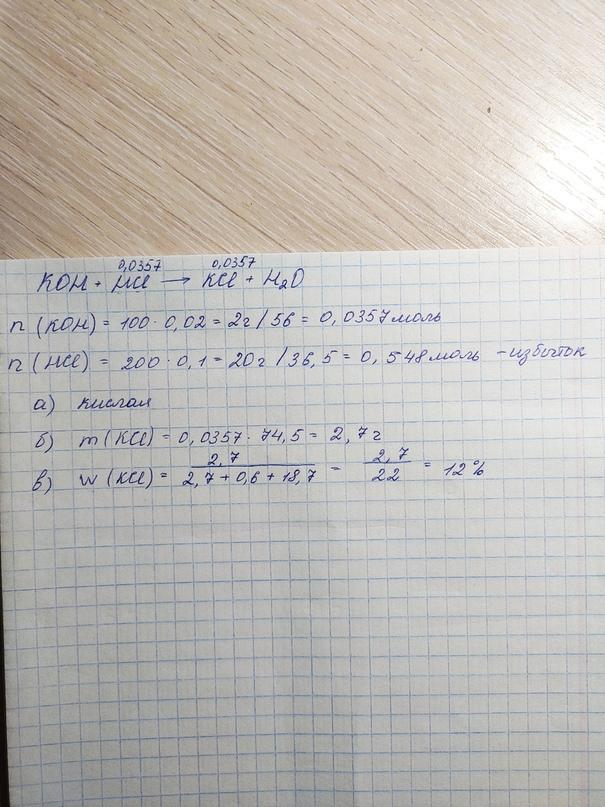 0,0357 0,0357
KOH + HCl → KCl + H₂O
n (KOH) = 100 · 0,02 = 2г / 56 = 0,0357 моль
n (HCl) = 200 · 0,1 = 20г / 36,5 = 0,548 моль - избыток
а) кислая
б) m (KCl) = 0,0357 · 74,5 = 2,7 г
2,7 2,7
в) w (KCl) = ―――― = ―― = 12%
2,7 + 0,6 + 18,7 22